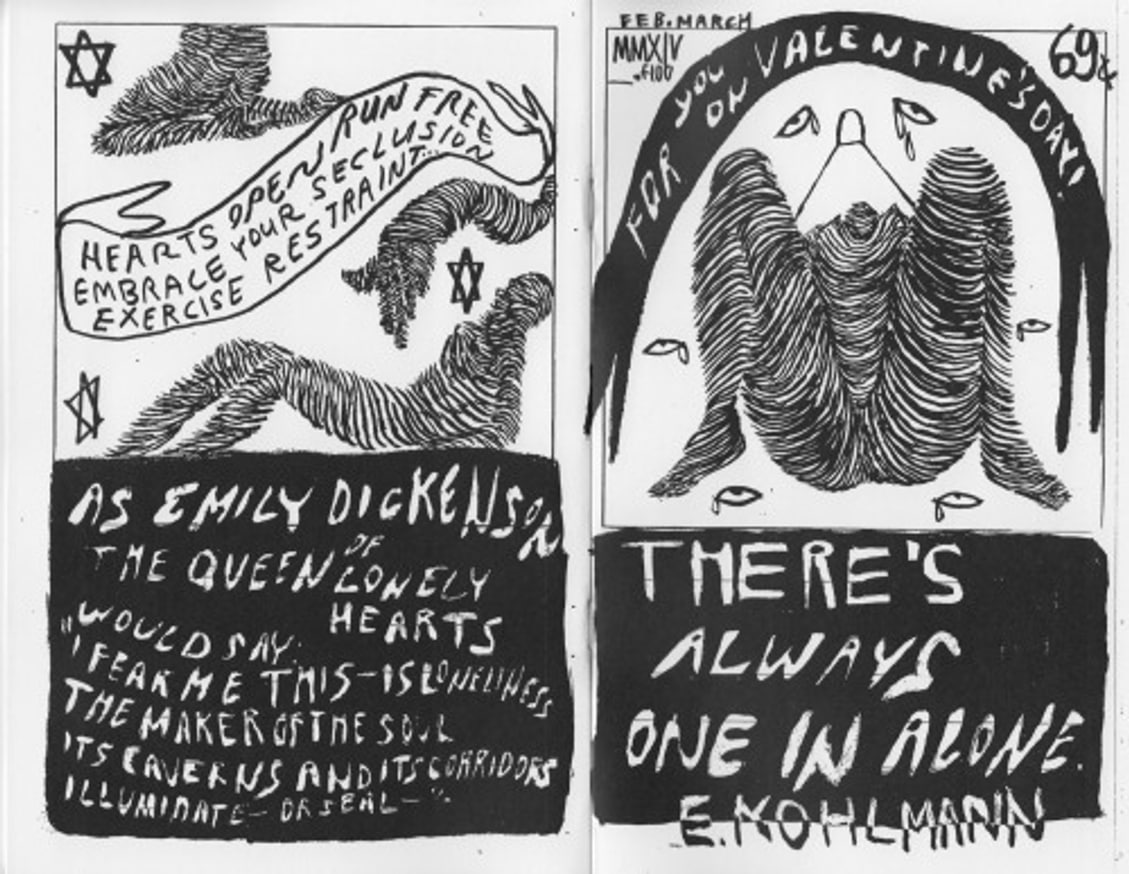 HEARTS OPEN RUN FREE
EMBRACE YOUR SECLUSION
EXERCISE RESTRAINT...
AS EMILY DICKENSON
THE QUEEN OF
LONELY
HEARTS
"WOULD SAY:
'I FEAR ME THIS—IS LONELINESS
THE MAKER OF THE SOUL
ITS CAVERNS AND ITS CORRIDORS
ILLUMINATE— OR SEAL—'"
FEB. MARCH
MMXIV
69¢
FOR YOU ON VALENTINE'S DAY!
THERE'S
ALWAYS
ONE IN ALONE.
E. KOHLMANN